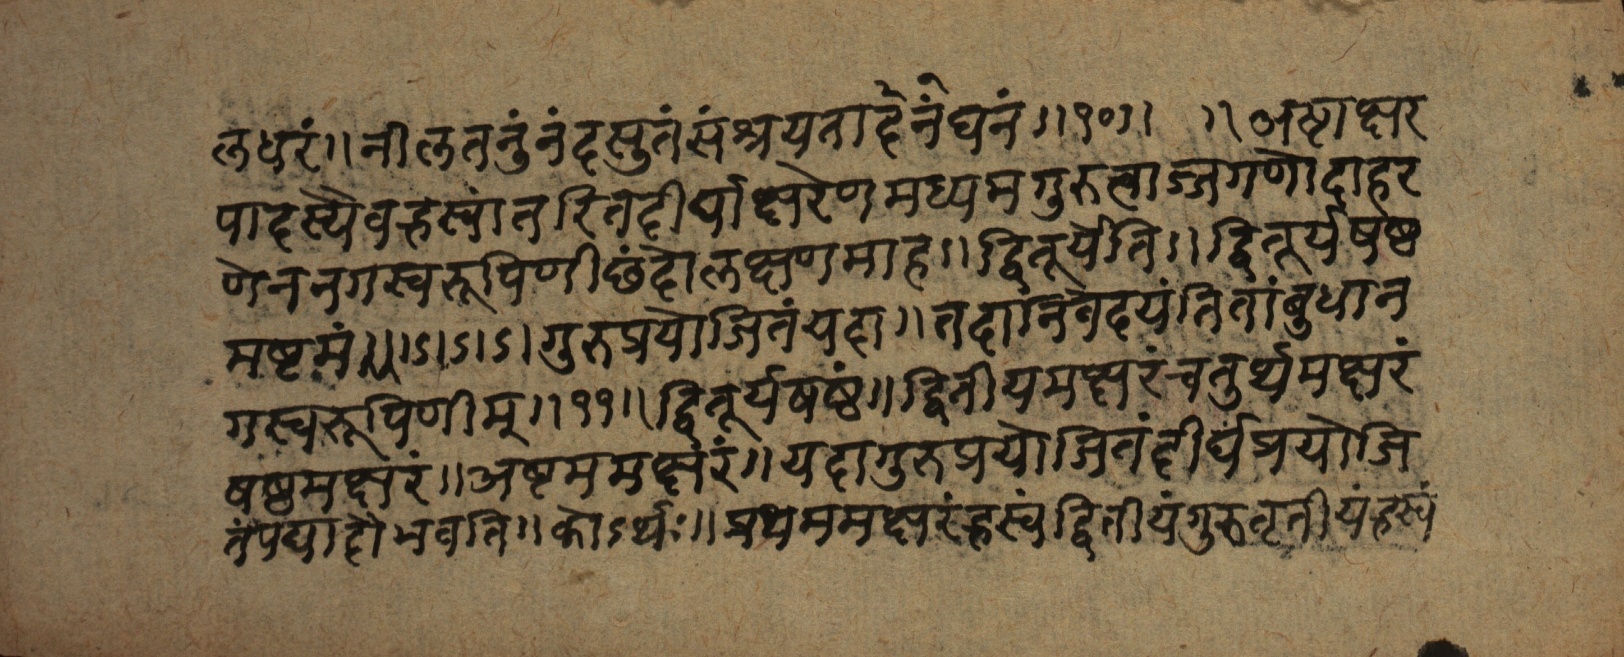 लधरं॥ नीलतनुंनंदसुतंसंश्रयतादेनंघनं॥१०॥ ॥अष्टाक्षर
पादस्यैवह्रस्वांतरितदीर्घाक्षरेणमध्यमगुरुत्वाज्जगणोदाहर
णेननगस्वरूपिणीछंदोलक्षणमाह॥ द्वितूर्येति॥ द्वितूर्यषष्ठ
मष्टमं॥।ऽ।ऽ।ऽ।गुरुप्रयोजितंयदा॥ तदानिवेदयंतितांबुधान
गस्वरूपिणीम्॥११॥ द्वितूर्यषष्ठं॥ द्वितीयमक्षरंचतुर्थमक्षरं
षष्ठमक्षरं॥ अष्टममक्षरं॥ यदागुरुप्रयोजितंदीर्घप्रयोजि
तंपद्यादौभवति॥ कोऽर्थः॥ प्रथममक्षरंह्रस्वंद्वितीयंगुरुतृतीयंह्रस्वं